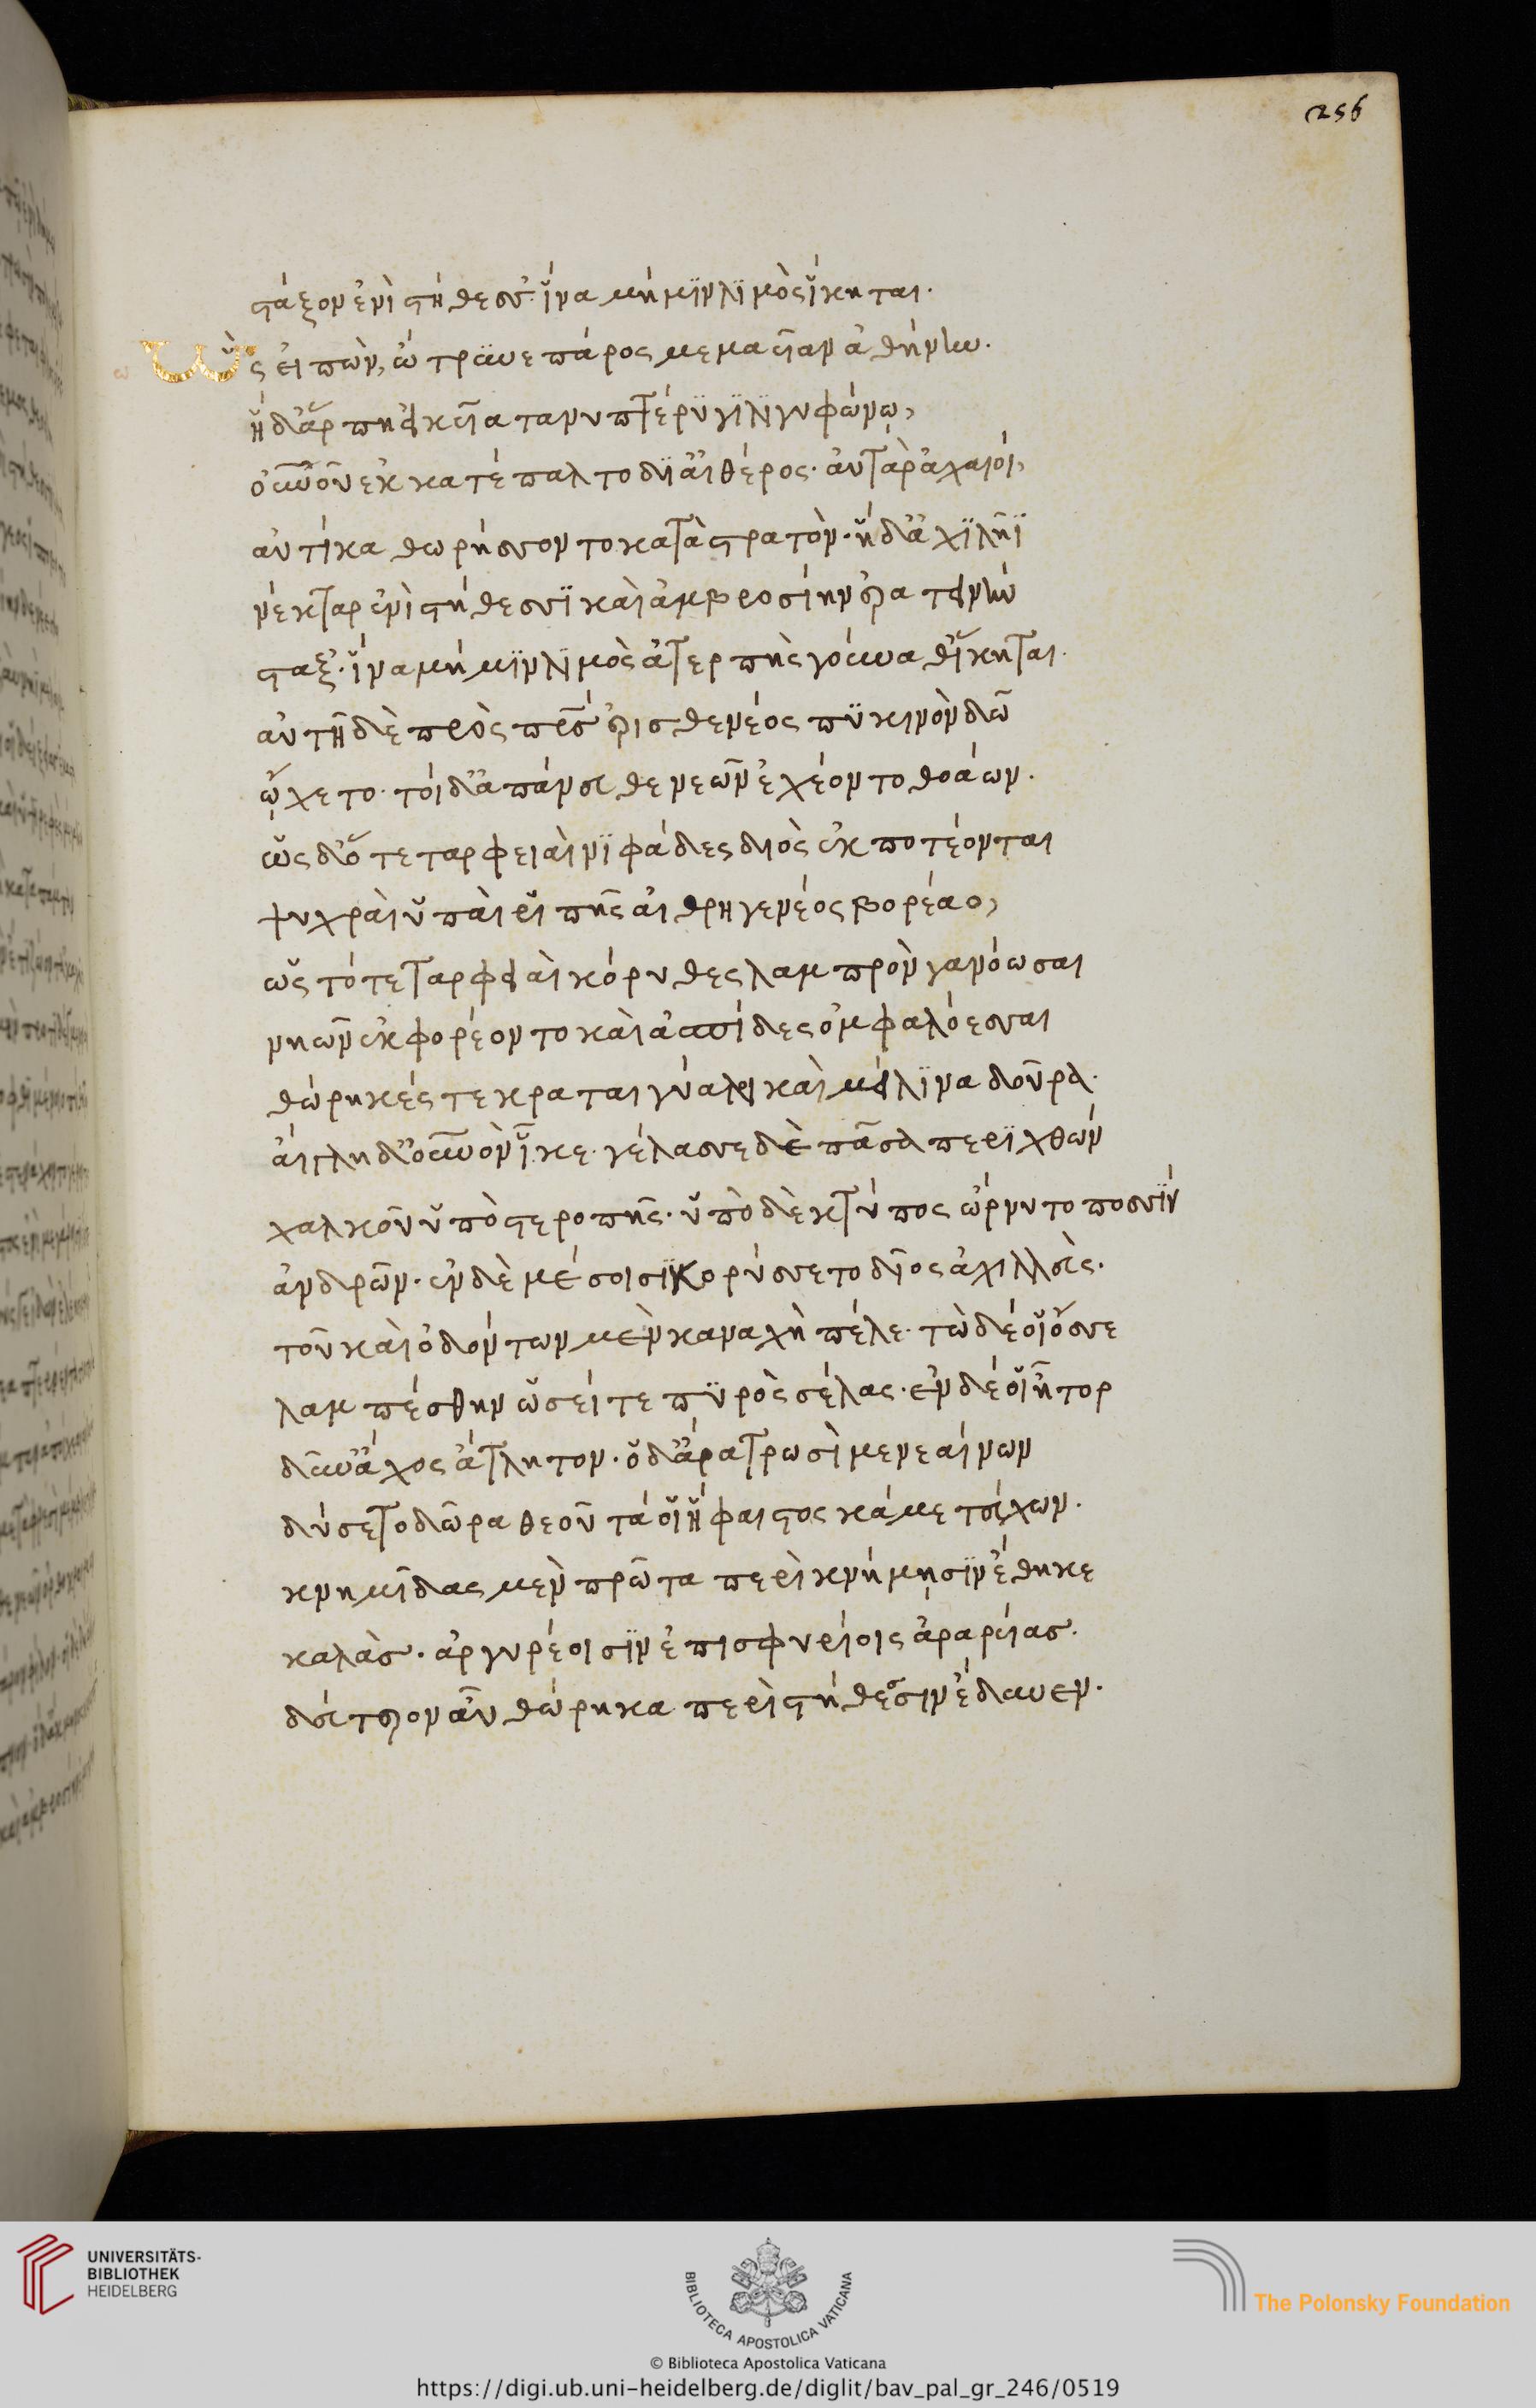 256
στάξον ἐνὶ στήθεσσ'· ἵνα μή μϊν λϊμὸς ἵκηται.
ὣς εἰπὼν, ὤτρϋνε πάρος μεμαυῖαν ἀθήνην.
ἡ δ' ἅρπη εἰκυῖα τανυπτέρϋγϊ λϊγυφώνω,
οὐρανοῦ ἐκ κατέπαλτο δϊ' αἰθέρος· αὐτὰρ ἀχαιοί,
αὐτίκα θωρήσσοντο κατὰ στρατόν· ἡ δ' ἀχϊλῆϊ
νέκταρ ἐνὶ στήθεσσϊ καὶ ἀμβροσίην ἐρατεινὴν
στάξ'· ἵνα μή μϊν λϊμὸς ἀτερπὴς γούναθ' ἵκηται.
αὐτὴ δὲ πρὸς πατρὸς ἐρισθενέος πϋκινὸν δῶ
ᾤχετο· τοὶ δ' ἀπάνευθε νεῶν ἐχέοντο θοάων.
ὡς δ' ὅτε ταρφειαὶ νϊφάδες διὸς ἐκποτέονται
ψυχραὶ ὑπαὶ ῥιπῆς αἰθρηγενέος βορέαο,
ὣς τότε ταρφειαὶ κόρυθες λαμπρὸν γανόωσαι
νηῶν ἐκφορέοντο καὶ ἀσπίδες ὀμφαλόεσσαι
θώρηκές τε κραταιγύαλοι καὶ μείλϊνα δοῦρα.
αἴγλη δ' οὐρανὸν ἷκε. γέλασσε δὲ πᾶσα περὶ χθὼν
χαλκοῦ ὑπὸ στεροπῆς· ὑπὸ δὲ κτύπος ὤρνυτο ποσσϊν
ἀνδρῶν· ἐν δὲ μέσοισϊ κορύσσετο δῖος ἀχιλλεύς.
τοῦ καὶ ὀδόντων μὲν καναχὴ πέλε· τὼ δέ οἱ ὄσσε
λαμπέσθην ὡσεί τε πϋρὸς σέλας· ἐν δέ οἱ ἦτορ
δῦν' ἄχος ἄτλητον· ὁ δ' ἄρα τρωσὶ μενεαίνων
δύσετο δῶρα θεοῦ τά οἱ ἥφαιστος κάμε τεύχων.
κνημῖδας μὲν πρῶτα περὶ κνήμησϊν ἔθηκε
καλὰς· ἀργυρέοισϊν ἐπισφυρίοις ἀραρυίας.
δεύτερον αὖ θώρηκα περὶ στήθεσσιν ἔδυνεν.
UNIVERSITÄTS-
BIBLIOTHEK
HEIDELBERG
BIBLIOTECA APOSTOLICA VATICANA
The Polonsky Foundation
© Biblioteca Apostolica Vaticana
https://digi.ub.uni-heidelberg.de/diglit/bav_pal_gr_246/0519